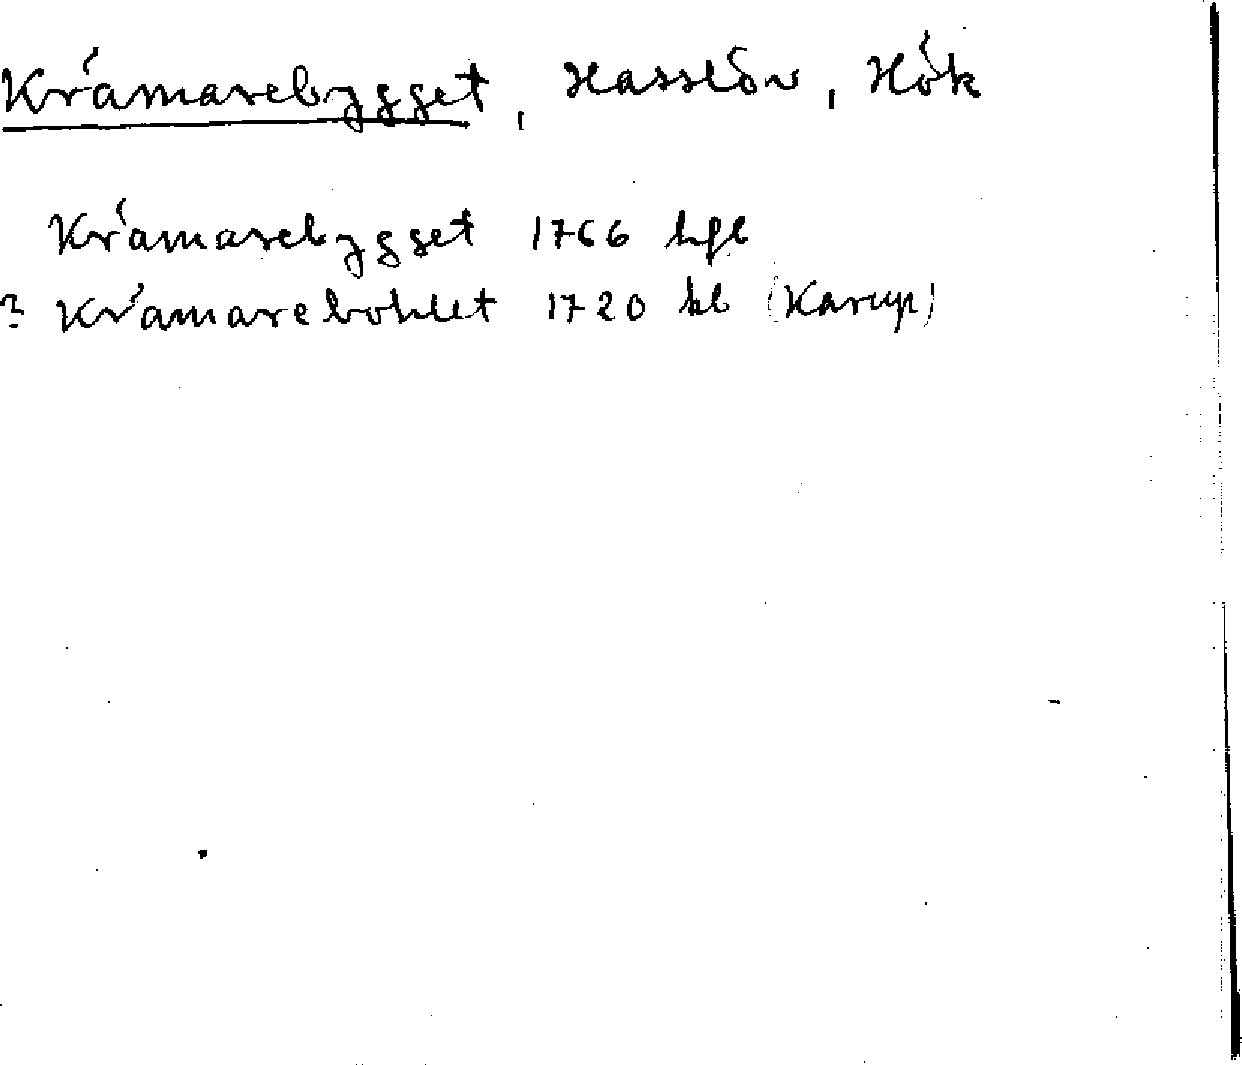 Krämarebygget, Hasslöv, Hök
Krämarebygget 1766 hfl
? Krämarebohlet 1720 kb (Karup)